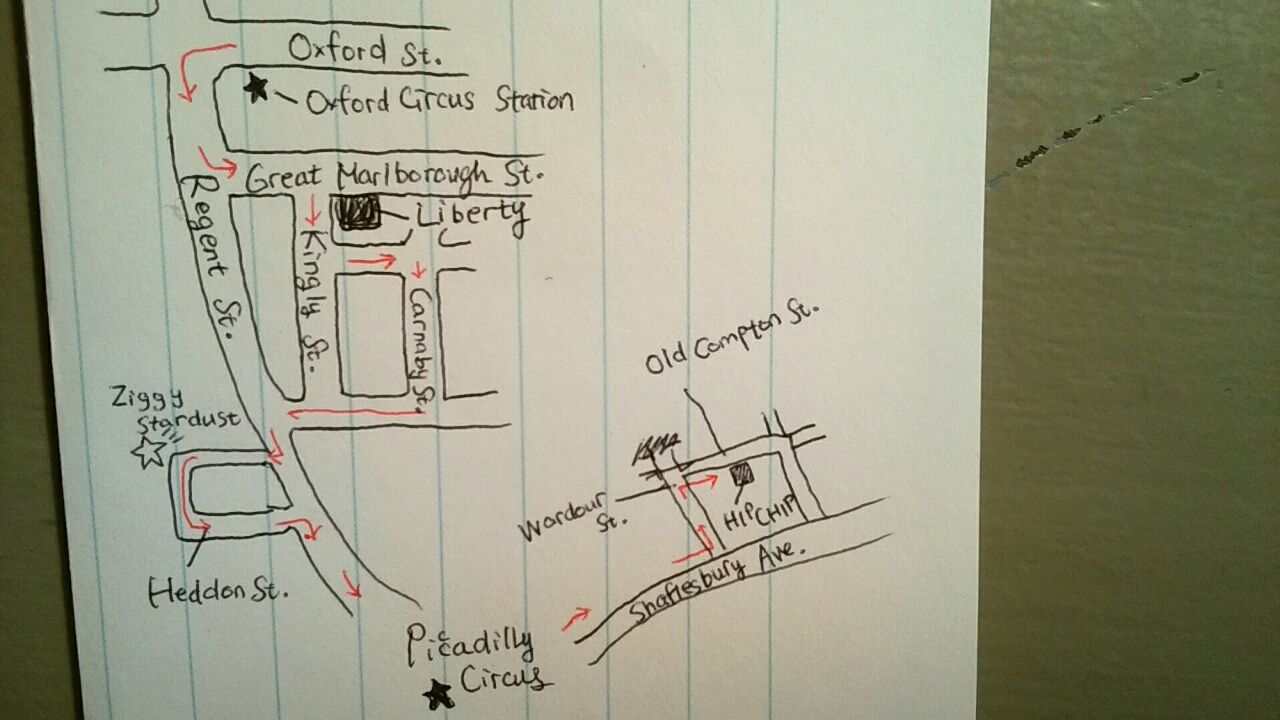 Oxford St.
Oxford Circus Station
Great Marlborough St.
Liberty
Regent St.
Kingly St.
Carnaby St.
Ziggy
Stardust
Heddon St.
Old Compton St.
Wardour
St.
HIPCHIP
Shaftesbury Ave.
Picadilly
Circus